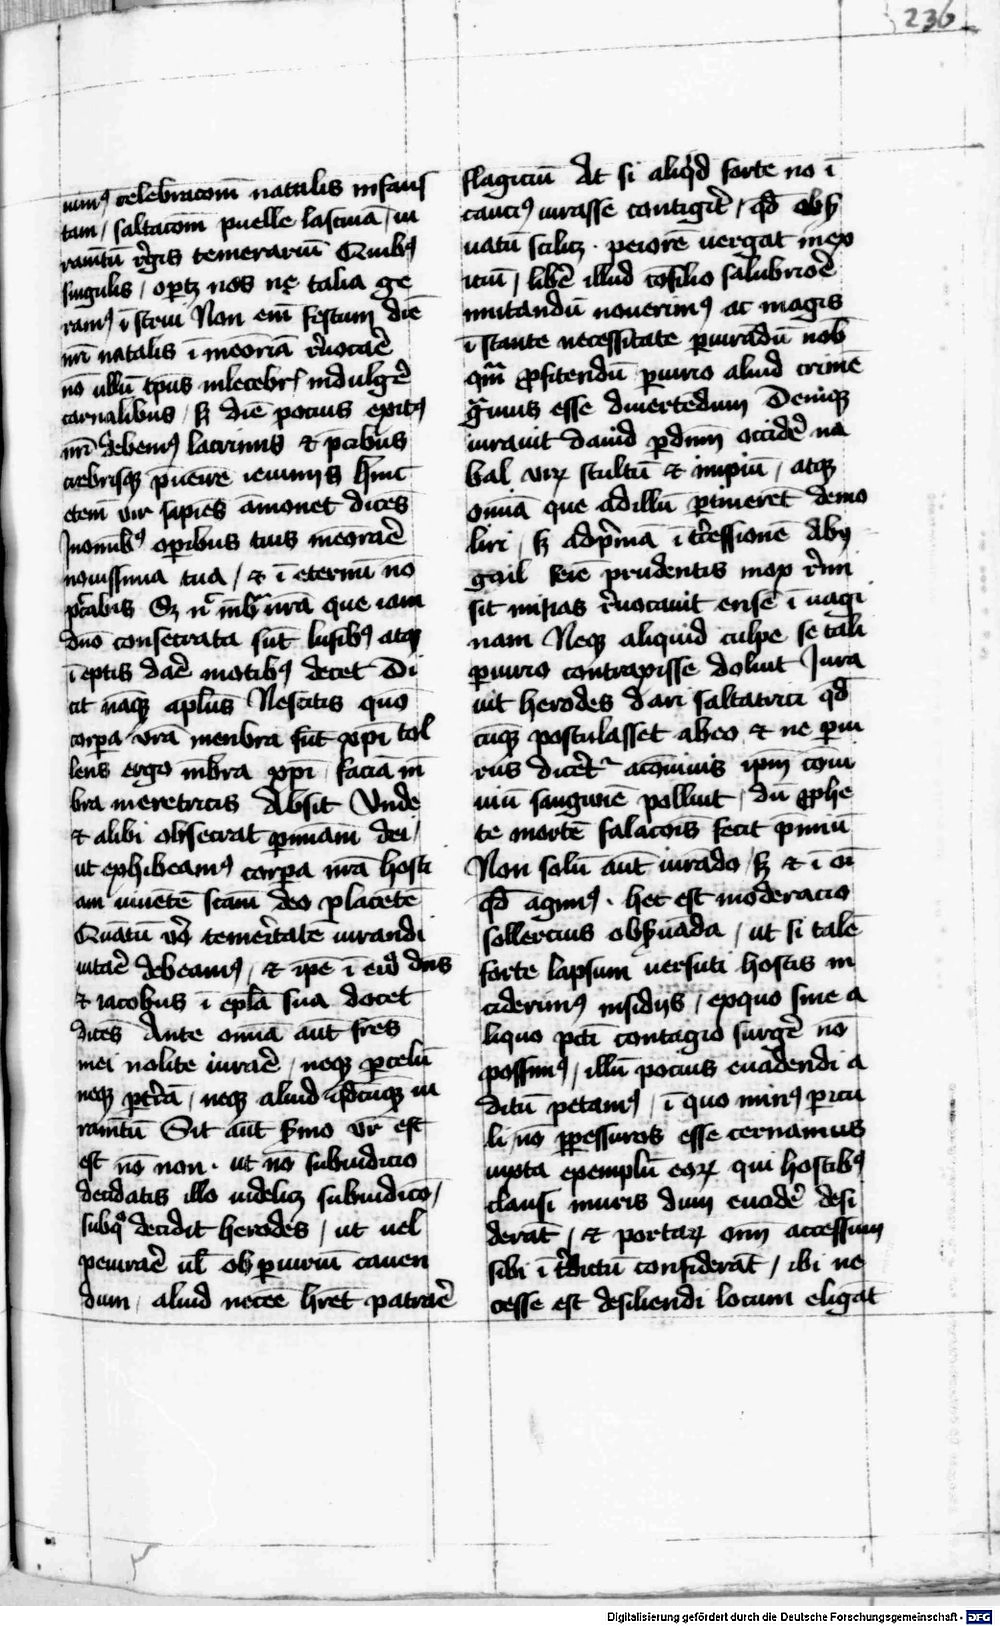 236
nim9 celebracōm natalis infaus
tam / saltacōm puelle lasciuā / iu
ramtū rēgis temerariū Quibus9
singulis / oportz nos nē talia ge
ramus9 īstrui Non em̄ festum diē
nr̄i natalis ī meoriā reuocaē
nō ullū tp̄us inlecebris indulgē
carnalibus / sz diē pocius exitus
nr̄i debem9 lacrimis et p̄cibus
crebrisqz p̄uenire ieiuniis hinc
etem̄ vir sapiēs āmonet dicēs
Inomnib9 oꝑibus tuis meoraē
nouissima tua / et ī eternū nō
pccābis Sz nec mb̄ra nr̄a que iam
dūo consecrata sūt lusib9 atqz
ī eptis daē motib9 decet Di
cit nāqz aplūs Nescitis quō
corpa vr̄a menbra sūt xpī tol
lens ergo mb̄ra xpī facia m̄
bra meretricis Absit Vnde
et alibi obsecrat ꝑ m̄iam dei /
ut exhibeam9 corpa nr̄a hosti
am uiuētē scam̄ deo placētē
Quātū vō temeritatē iurandi
uitaē debeam9 / et ipē ī euḡ dn̄s
et iacobus ī eplā sua docet
dicēs Ante omīa aut̄ frēs
mei nolite iuraē / neqz ꝑ celū
neqz ꝑ tr̄ā / neqz aliud qdcūqz iu
ramtū Sit aut̄ sermo vr̄ est
est nō non . ut nō subiudicio
decidatis illo uidelicz subiudicō /
subqō decidit herodes / ut uel
peiuraē ul̄ ob ꝑiuriū cauen
dum / aliud necēe hr̄et patraē
flagiciū At si aliqd forte nō ī
cauci9 iurasse contigit̄ / qd obser
uatū scilicz . peiorē uergat inex
itiū / libē illud cōsilio salubriorē
mutandū nouerim9 ac magis
īstante necessitate ꝑiurādū nob̄
qm̄ ꝓfitendū ꝑiurio aliud crimē
grauius esse diuertēdum Deniqz
iurauit dauid ꝑ dnm̄ occidē na
bal virū stultū et impiū / atqz
omīa que ad illū ꝑtineret demo
liri / sz adpr̄mā ī tr̄cessionē Aby
gail feīe prudentis mox remi
sit minas reuocauit ensē ī uagi
nam Neqz aliquid culpe se tali
ꝑiurio contraxisse doluit Iura
uit herodes dari saltatrici qd
cūqz postulasset abeo et ne ꝑiu
rus dicēt̄ acōuiuis ipm̄ cōui
uiū sanguinē polluit / dū ꝓphe
te mortē saltacōis fecit p̄miū
Non solū aut̄ iurādo / sz et ī oī
qd agim9 . hec est moderacio
sollercius obseruāda / ut si talē
forte lapsum uersuti hostis in
ciderim9 insidijs / exquo sine a
liquo pcti contagio surgē nō
possim9 / illū pocius euadendi a
ditū petam9 / ī quo min9 pericu
li nō ꝑpessuros esse cernamus
iuxta exemplū eorū qui hostib9
clausi muris dum euadē desi
derāt / et portarū omn̄ accessum
sibi ī t̄dictū considerāt / ibi ne
cesse est desiliendi locum eligāt
Digitalisierung gefördert durch die Deutsche Forschungsgemeinschaft - DFG